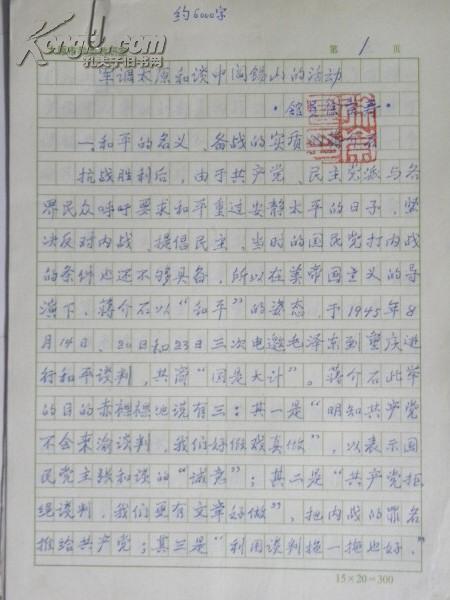 约6000字
第 1 页
军调太原和谈中阎锡山的活动
一、和平的名义、备战的实质
抗战胜利后，由于共产党、民主党派与各
界民众呼吁要求和平重过安静太平的日子，坚
决反对内战、提倡民主，当时的国民党打内战
的条件也还不够具备，所以在美帝国主义的导
演下，蒋介石以“和平”的姿态，于1945年8
月14日、20日和23日三次电邀毛泽东到重庆进
行和平谈判，共商“国是大计”。蒋介石此举
的目的赤裸裸地说有三：其一是“明知共产党
不会来渝谈判，我们好做戏真做”，以表示国
民党主张和谈的“诚意”；其二是“共产党拒
绝谈判，我们更有文章好做”，把内战的罪名
推给共产党；其三是“利用谈判拖一拖也好，”
15×20=300
孔夫子旧书网